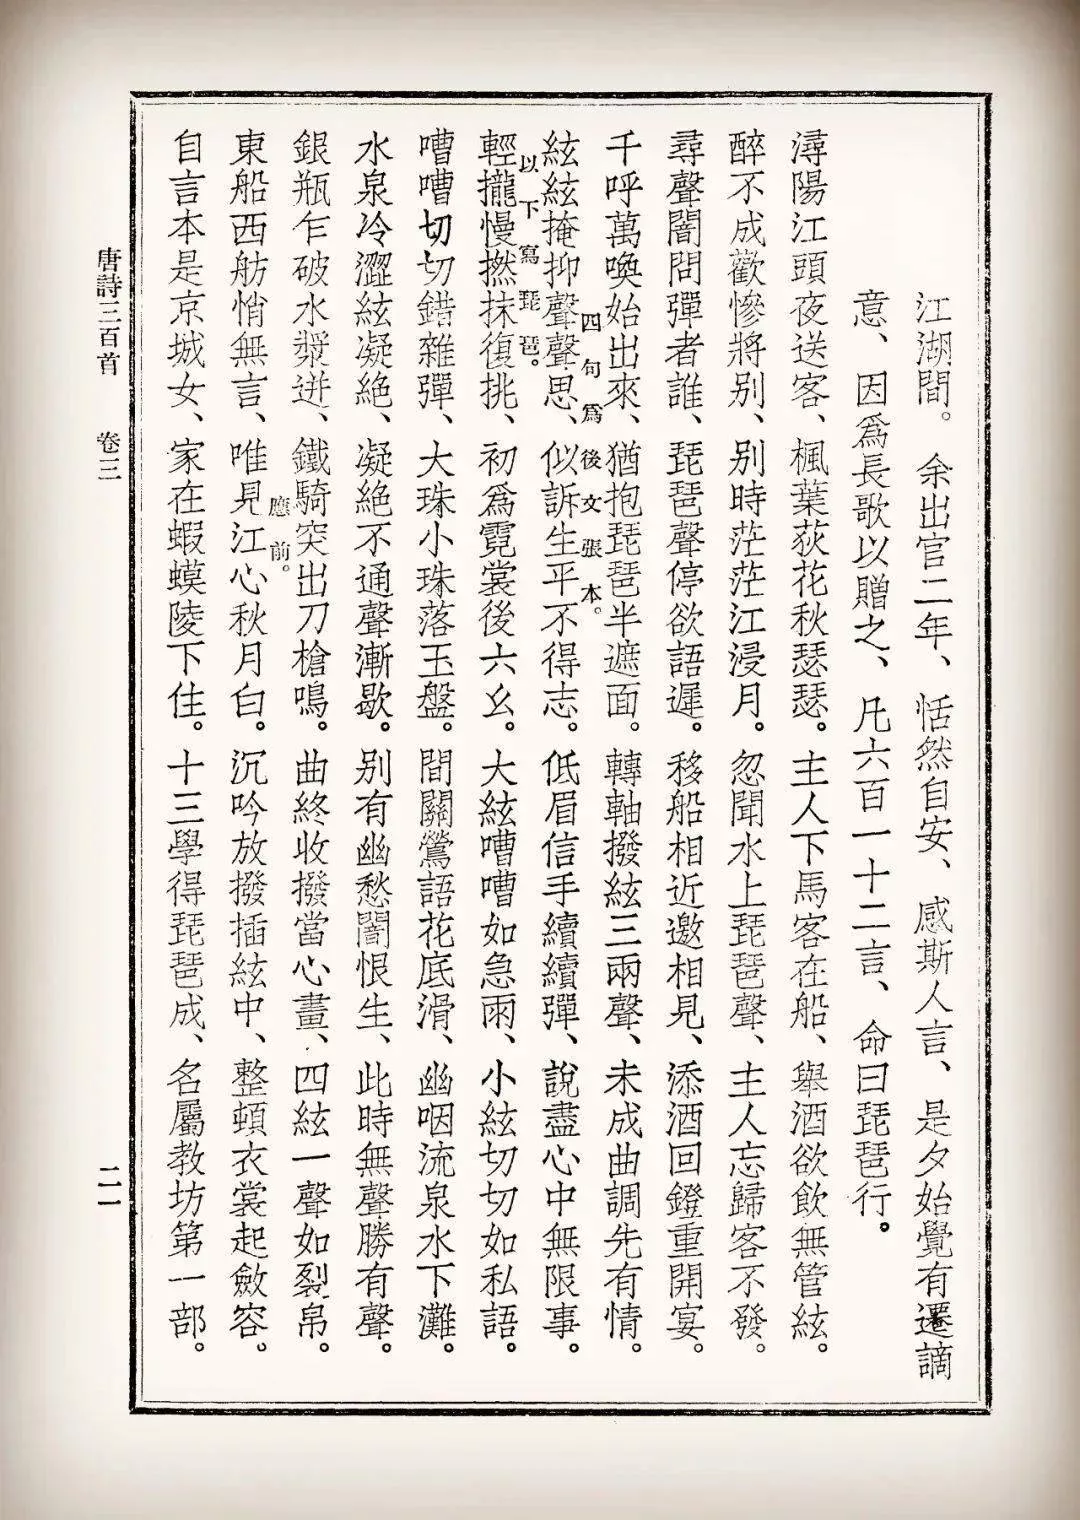 江湖間。余出官二年、恬然自安、感斯人言、是夕始覺有遷謫
意、因爲長歌以贈之、凡六百一十二言、命曰琵琶行。
潯陽江頭夜送客、楓葉荻花秋瑟瑟。主人下馬客在船、舉酒欲飲無管絃。
醉不成歡慘將别、别時茫茫江浸月。忽聞水上琵琶聲、主人忘歸客不發。
尋聲闇問彈者誰、琵琶聲停欲語遲。移船相近邀相見、添酒回鐙重開宴。
千呼萬喚始出來、猶抱琵琶半遮面。轉軸撥絃三兩聲、未成曲調先有情。
四句爲後文張本。
絃絃掩抑聲聲思、似訴生平不得志。低眉信手續續彈、說盡心中無限事。
以下寫琵琶。
輕攏慢撚抹復挑、初爲霓裳後六幺。大絃嘈嘈如急雨、小絃切切如私語。
嘈嘈切切錯雜彈、大珠小珠落玉盤。間關鶯語花底滑、幽咽流泉水下灘。
水泉冷澀絃凝絶、凝絶不通聲漸歇。别有幽愁闇恨生、此時無聲勝有聲。
銀瓶乍破水漿迸、鐵騎突出刀槍鳴。曲終收撥當心畫、四絃一聲如裂帛。
應前。
東船西舫悄無言、唯見江心秋月白。沉吟放撥插絃中、整頓衣裳起斂容。
自言本是京城女、家在蝦蟆陵下住。十三學得琵琶成、名屬教坊第一部。
唐詩三百首 卷三 二一